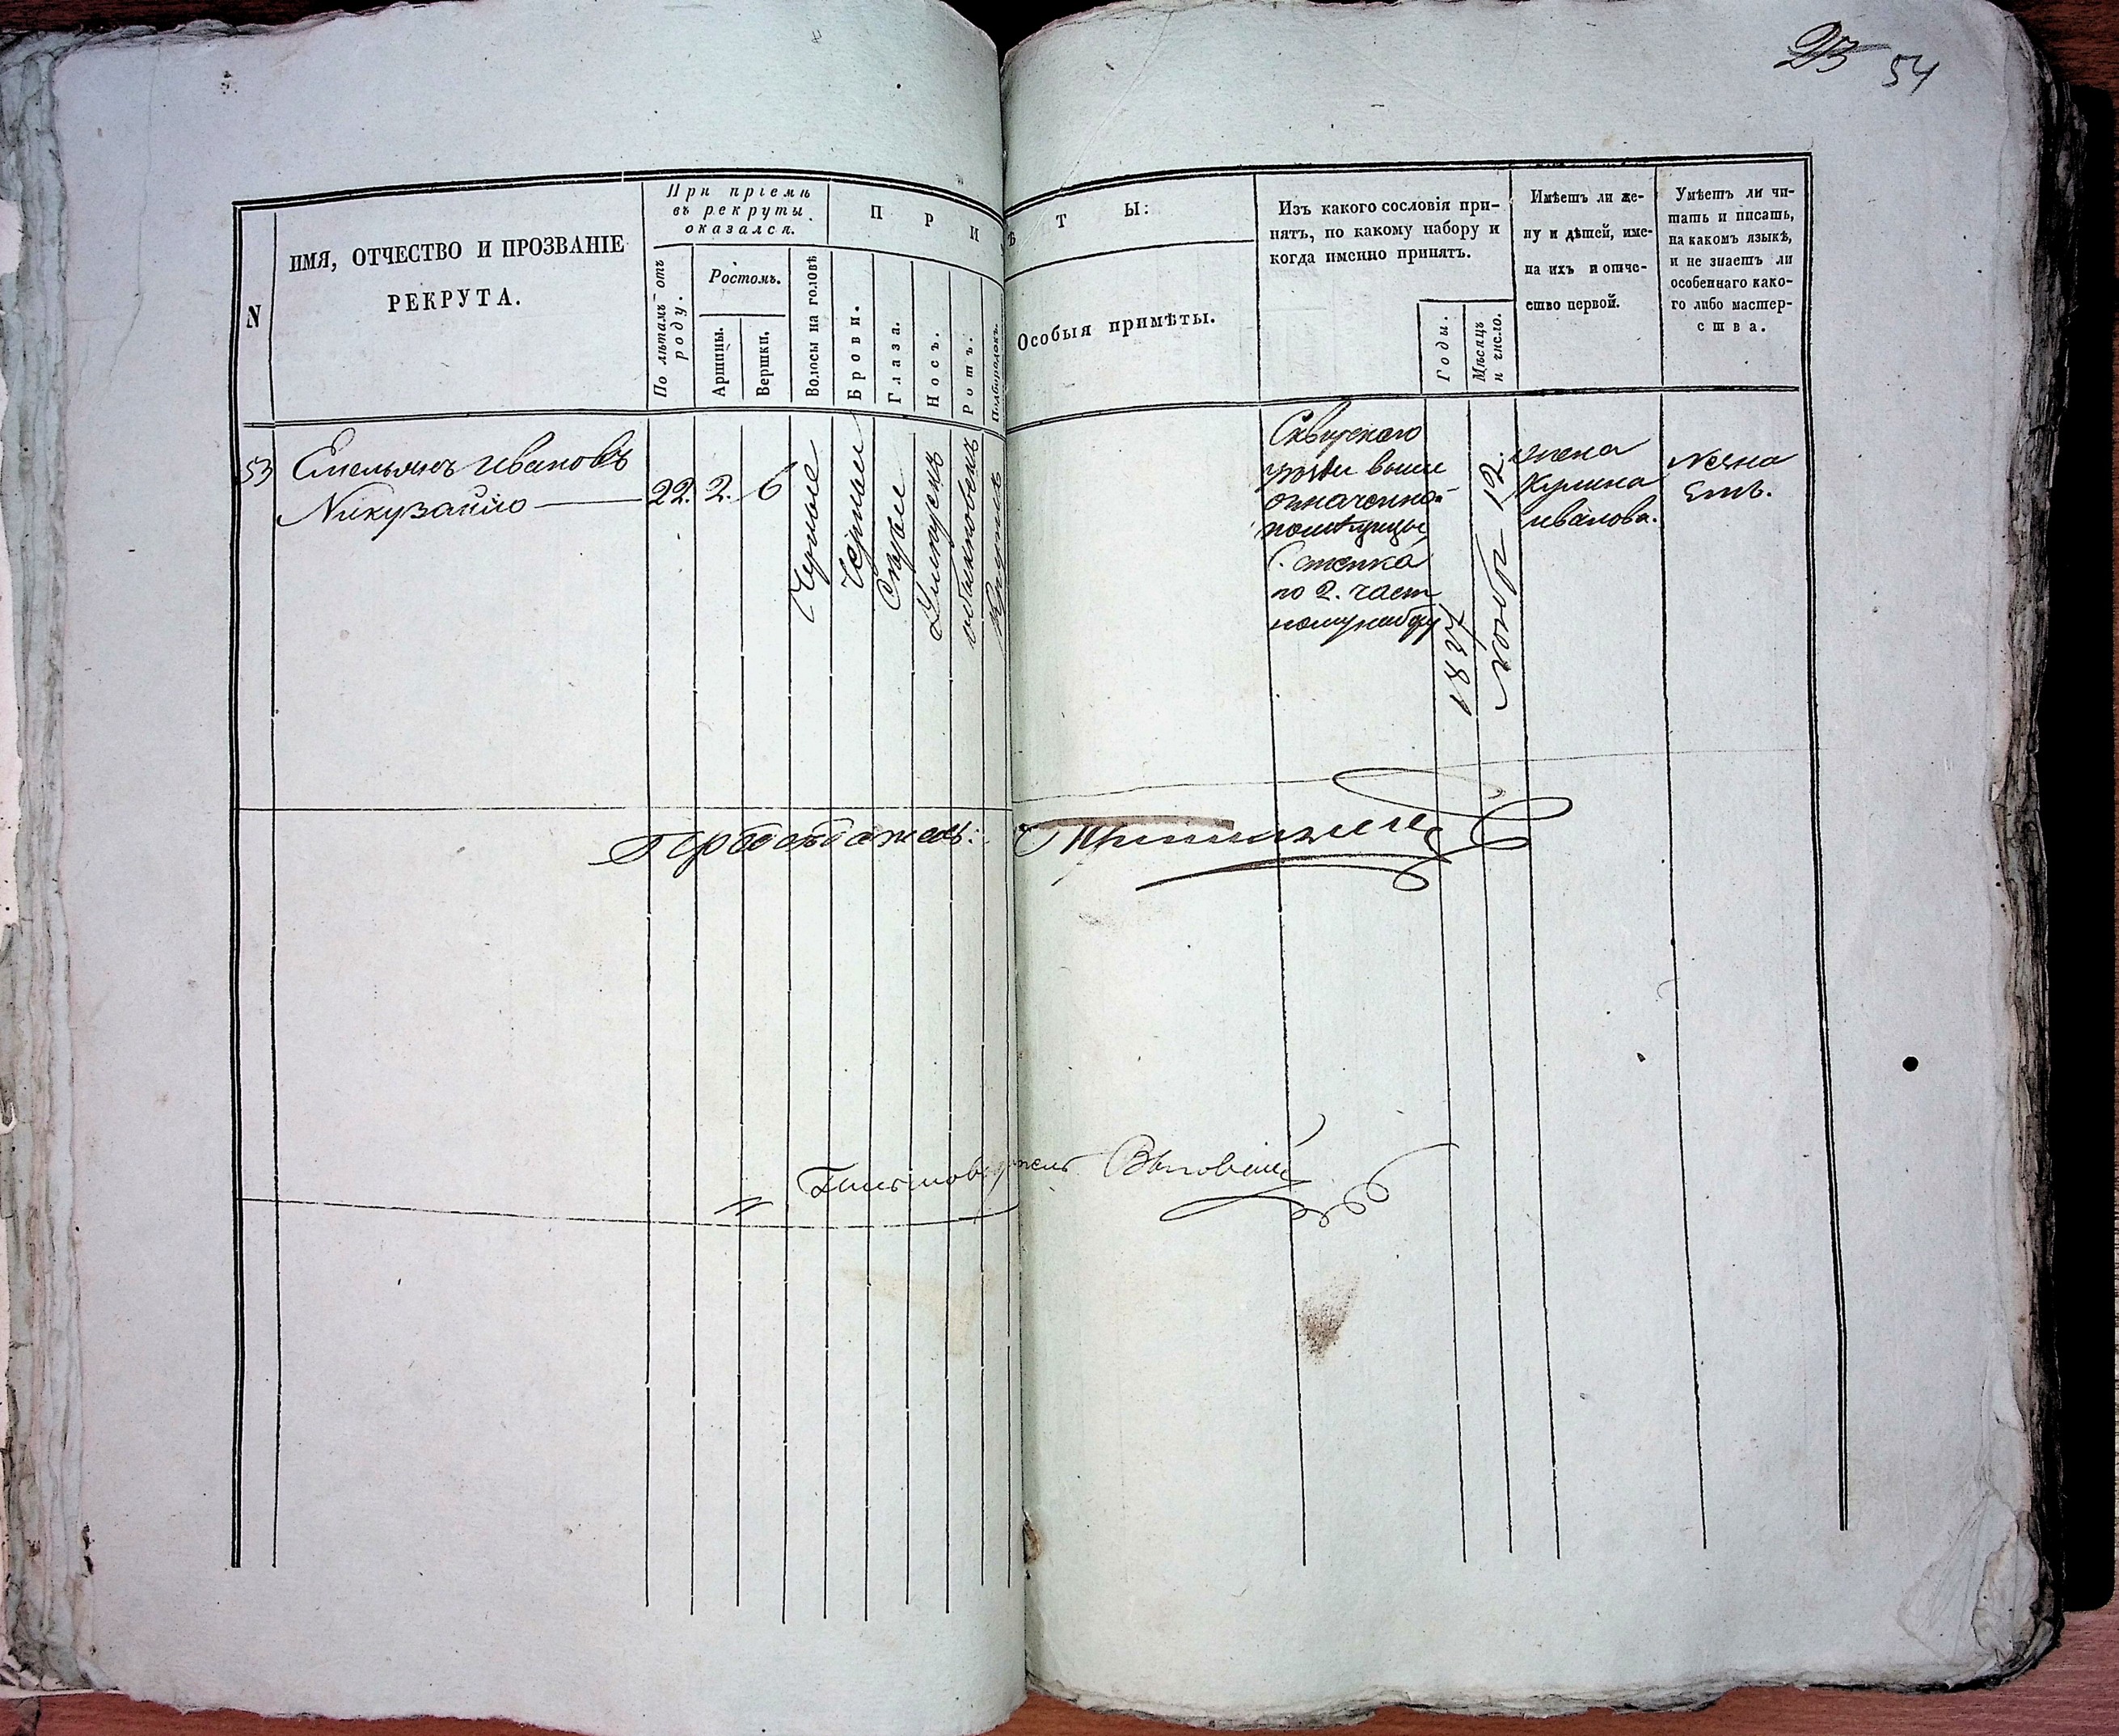 23 54
N
ИМЯ, ОТЧЕСТВО И ПРОЗВАНІЕ
РЕКРУТА.
При пріемѣ
въ рекруты
оказался.
По лѣтамъ отъ
роду.
Ростомъ.
Аршины.
Вершки.
П Р И Ѣ Т Ы:
Волосы на головѣ
Брови.
Глаза.
Носъ.
Ротъ.
Подбородокъ.
Особыя примѣты.
Изъ какого сословія при-
нятъ, по какому набору и
когда именно принятъ.
Годы.
Мѣсяцъ
и число.
Имѣетъ ли же-
ну и дѣтей, име-
на ихъ и отче-
ство первой.
Умѣетъ ли чи-
тать и писать,
на какомъ языкѣ,
и не знаетъ ли
особеннаго како-
го либо мастер-
ства.
53
Емельянъ Ивановъ
22. 2. 6
Черные
Черныи
Скурые
обыкновенъ
Сквирскаго
выше
означенно-
помѣщицы
по 2. част
ному набору
1837
Ноябр 12.
жена
Кулина
Иванова.
Незна
етъ.